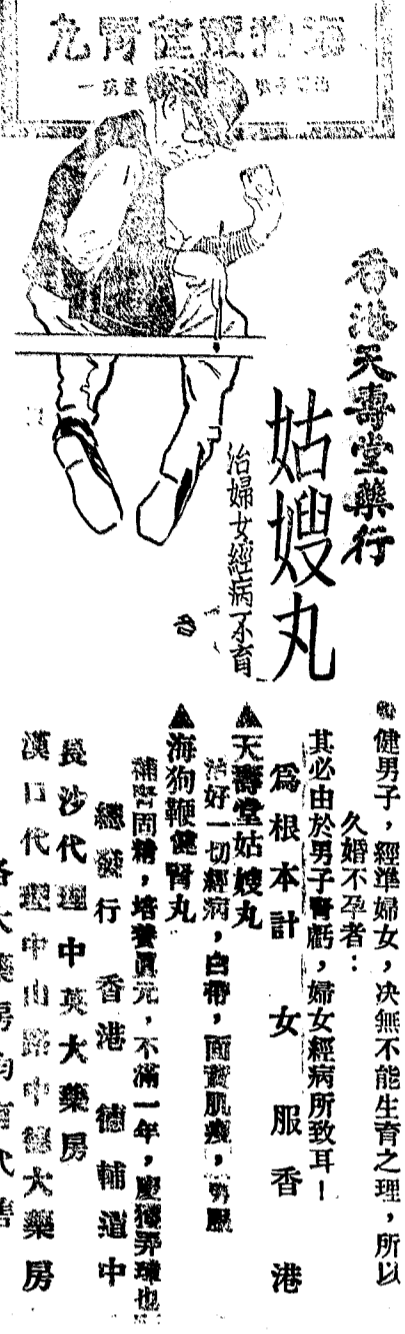 海狗鞭健腎丸
香港天壽堂藥行
姑嫂丸
治婦女經病不育
健男子，經準婦女，決無不能生育之理，所以
久婚不孕者：
其必由於男子腎虧，婦女經病所致耳！
爲根本計 女服香港
▲天壽堂姑嫂丸
治好一切經病，白帶，面黃肌瘦，男服
▲海狗鞭健腎丸
補腎固精，培養眞元，不滿一年，慶獲弄璋也
總發行 香港德輔道中
長沙代理中英大藥房
漢口代理中山路中德大藥房
各大藥房均有代售